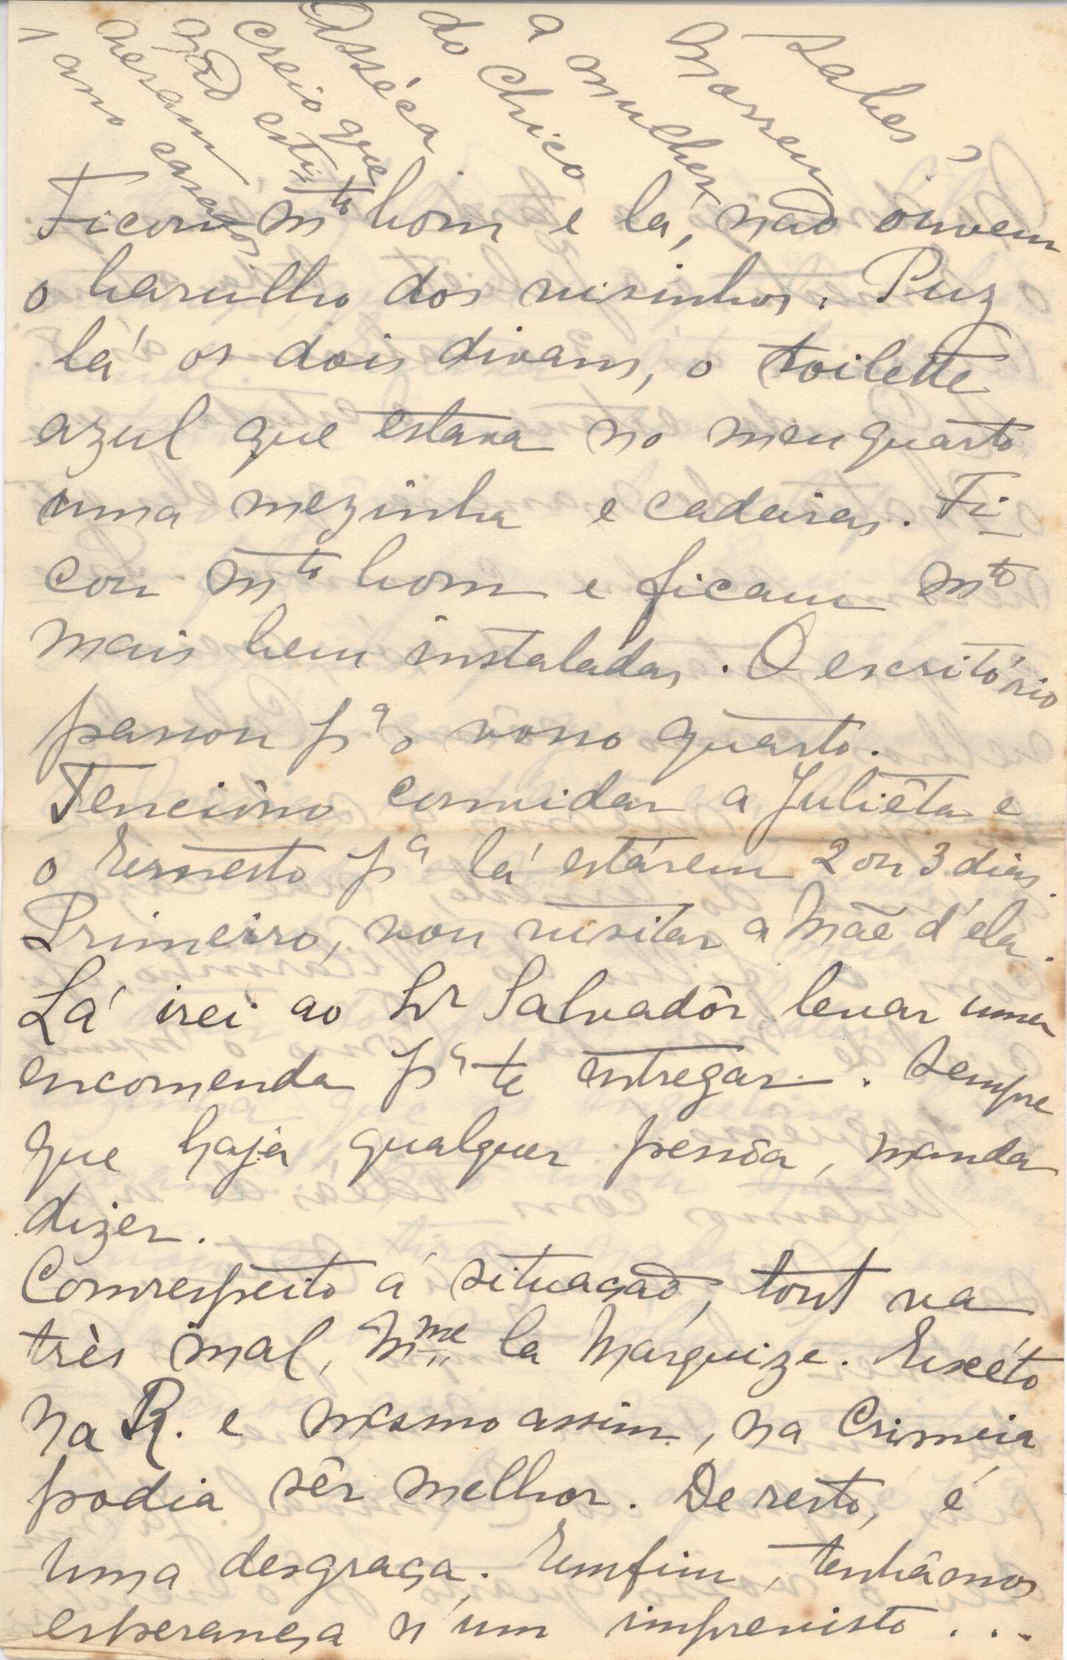 Sabes,
Morreu
a mulher
do Chico
Asséca
creio que
não estiveram
1 ano casados
Ficou mto bom e lá, não ouvem
o barulho dos visinhos. Puz
lá os dois divans, o toilette
azul que estava no meu quarto
uma mezinha e cadeiras. Fi-
cou mto bom e ficam mto
mais bem instaladas. O escritório
passou pa o vosso quarto.
Tenciôno convidar a Juliêta e
o Ernesto pa lá estárem 2 ou 3 dias.
Primeiro, vou visitar a Mãe d'ela.
Lá irei ao Sr Salvadôr levar uma
encomenda pa te entregar. Sempre
que haja qualquer pessôa, manda
dizer.
Comrespeito á situação, tout va
très mal, Mme la Marquize. Excéto
na R. e mesmo assim, na Crimeia
podia sêr melhor. De resto, é
uma desgraça. Emfim, tenhâmos
esperança n'um imprevisto...